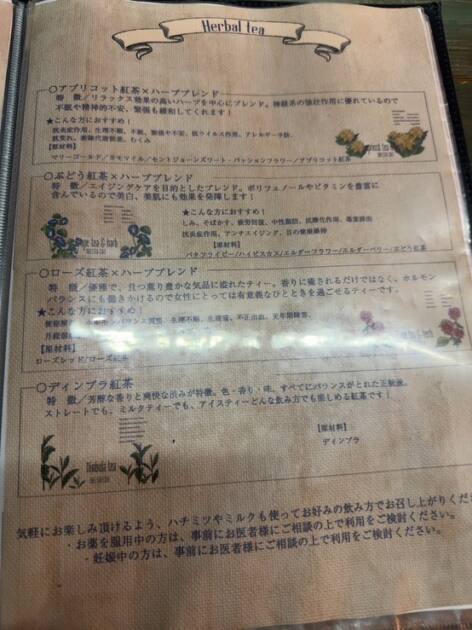 Herbal tea
○アプリコット紅茶×ハーブブレンド
特 徴／リラックス効果の高いハーブを中心にブレンド。神経系の強壮作用に優れているので
不眠や精神的不安、緊張も緩和してくれます！
★こんな方におすすめ！
抗炎症作用、生理不順、不眠、緊張や不安、抗ウイルス作用、アレルギー予防、
むくみ
【原材料】
マリーゴールド／カモマイル／セントジョーンズワート・パッションフラワー／アプリコット紅茶
○ぶどう紅茶×ハーブブレンド
特 徴／エイジングケアを目的としたブレンド。ポリフェノールやビタミンを豊富に
含んでいるので美白、美肌にも効果を発揮します！
★こんな方におすすめ！
しみ、そばかす、疲労回復、中性脂肪、抗酸化作用、
抗炎症作用、アンチエイジング、目の健康維持
【原材料】
バタフライピー/ハイビスカス/エルダーフラワー/エルダーベリー/ぶどう紅茶
○ローズ紅茶×ハーブブレンド
特 徴／優雅で、且つ薫り豊かな気品に溢れたティー。香りに癒されるだけではなく、ホルモン
バランスにも働きかけるので女性にとっては有意義なひとときを過ごせるティーです。
★こんな方におすすめ！
生理不順、生理痛、不正出血、更年期障害、
【原材料】
ローズレッド/ローズ紅茶
○ディンブラ紅茶
特 徴／芳醇な香りと爽快な渋みが特徴。色・香り・味、すべてにバランスがとれた正統派。
ストレートでも、ミルクティーでも、アイスティーどんな飲み方でも楽しめる紅茶です！
【原材料】
ディンブラ
Dimbula tea
気軽にお楽しみ頂けるよう、ハチミツやミルクも使ってお好みの飲み方でお召し上がりくだ
・お薬を服用中の方は、事前にお医者様にご相談の上で利用をご検討ください。
・妊娠中の方は、事前にお医者様にご相談の上で利用をご検討ください。